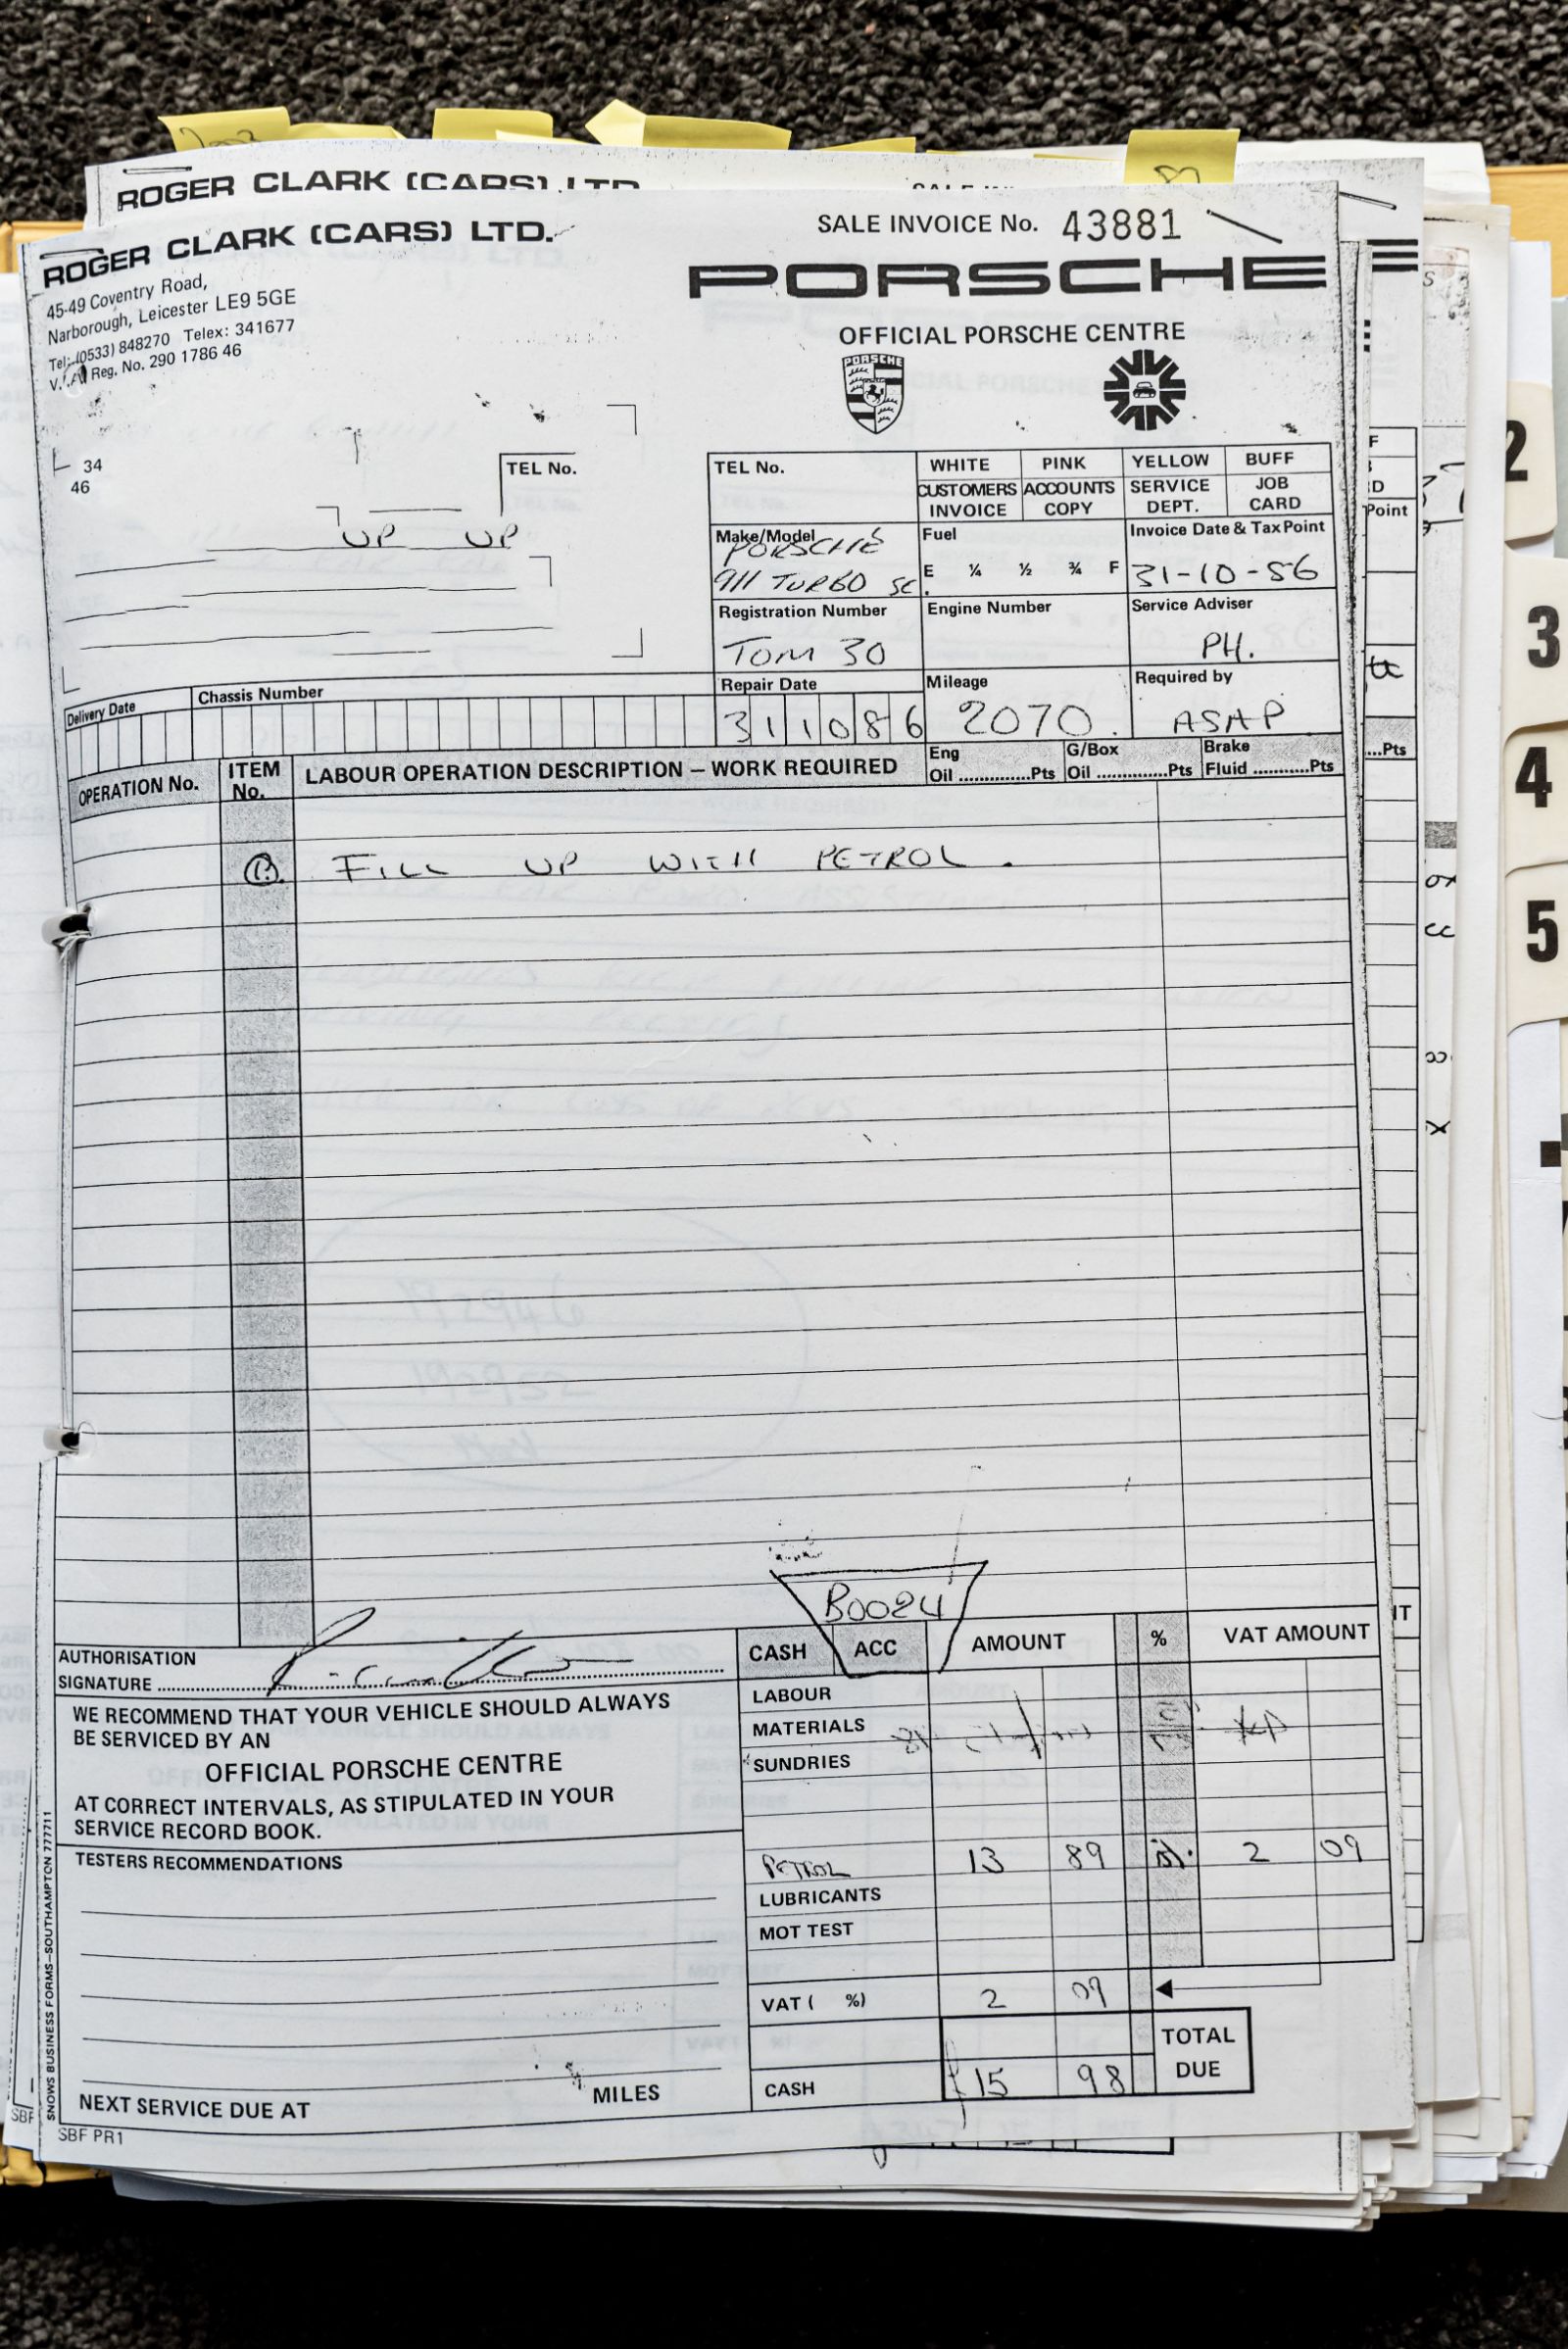 ROGER CLARK (CARS) LTD.
ROGER CLARK (CARS) LTD.
45-49 Coventry Road,
Narborough, Leicester LE9 5GE
Tel: (0533) 848270 Telex: 341677
Reg. No. 290 1786 46
SALE INVOICE No. 43881
PORSCHE
OFFICIAL PORSCHE CENTRE
PORSCHE
34
46
TEL No.
UP UP
TEL No.
WHITE PINK YELLOW BUFF
CUSTOMERS INVOICE ACCOUNTS COPY SERVICE DEPT. JOB CARD
Make/Model PORSCHE
911 TURBO SE.
Fuel
E ¼ ½ ¾ F
Invoice Date & Tax Point
31-10-86
Registration Number
TOM 30
Engine Number
Service Adviser
PH.
Delivery Date
Chassis Number
Repair Date
311086
Mileage
2070.
Required by
ASAP
OPERATION No. ITEM No. LABOUR OPERATION DESCRIPTION – WORK REQUIRED
Eng Oil ............Pts G/Box Oil ............Pts Brake Fluid ..........Pts
FILL UP WITH PETROL.
B0024
AUTHORISATION
SIGNATURE
CASH ACC AMOUNT % VAT AMOUNT
LABOUR
MATERIALS
SUNDRIES
WE RECOMMEND THAT YOUR VEHICLE SHOULD ALWAYS
BE SERVICED BY AN
OFFICIAL PORSCHE CENTRE
AT CORRECT INTERVALS, AS STIPULATED IN YOUR
SERVICE RECORD BOOK.
TESTERS RECOMMENDATIONS
PETROL 13 89 2 09
LUBRICANTS
MOT TEST
VAT ( %) 2 09
TOTAL DUE
CASH £15 98
NEXT SERVICE DUE AT MILES
SBF PR1
SNOWS BUSINESS FORMS–SOUTHAMPTON 777711
SBF
Point
...Pts
2
3
4
5